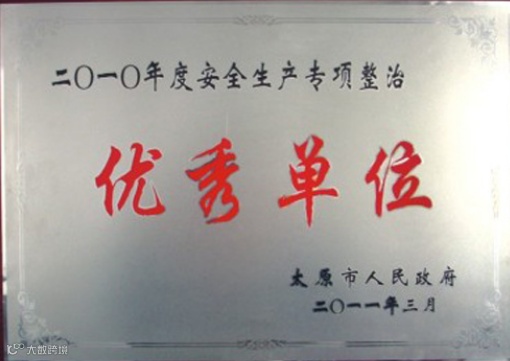 二〇一〇年度安全生产专项整治
优秀单位
太原市人民政府
二〇一一年三月
大数跨境